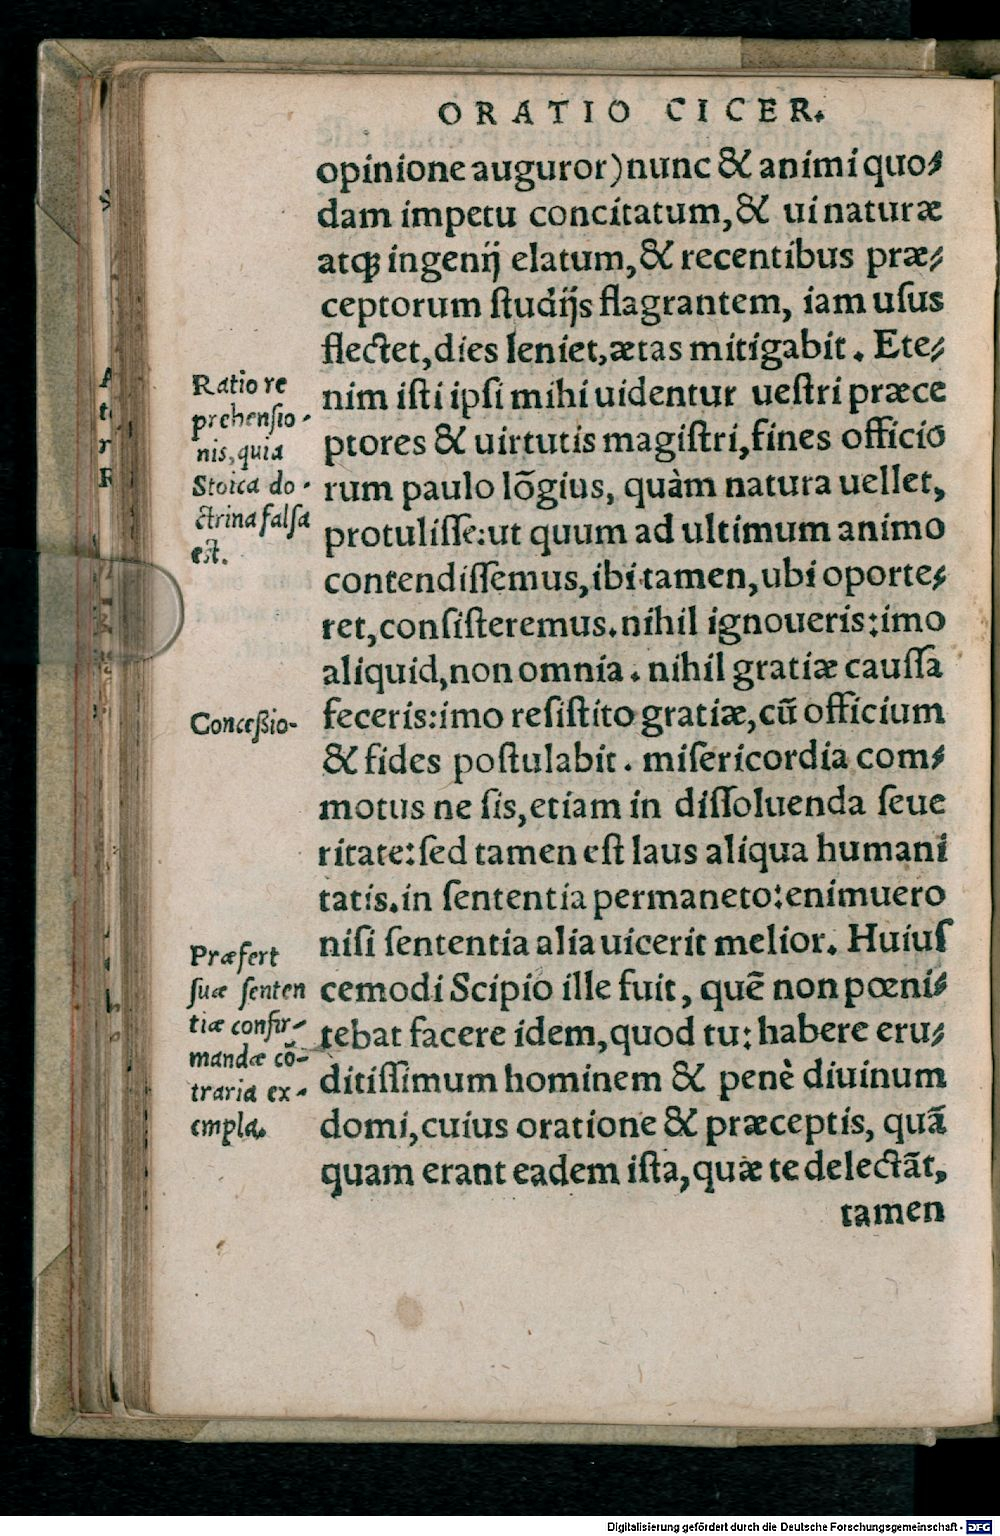 ORATIO CICER.
opinione auguror) nunc & animi quo⸗
dam impetu concitatum, & ui naturæ
atq; ingenij elatum, & recentibus præ⸗
ceptorum ſtudijs flagrantem, iam uſus
flectet, dies leniet, ætas mitigabit. Ete⸗
nim iſti ipſi mihi uidentur ueſtri præce
ptores & uirtutis magiſtri, fines officio
rum paulo lõgius, quàm natura uellet,
protuliſſe: ut quum ad ultimum animo
contendiſſemus, ibi tamen, ubi oporte⸗
ret, conſiſteremus. nihil ignoueris: imo
aliquid, non omnia. nihil gratiæ cauſſa
feceris: imo reſiſtito gratiæ, cũ officium
& fides poſtulabit. miſericordia com⸗
motus ne ſis, etiam in diſſoluenda ſeue
ritate: ſed tamen eſt laus aliqua humani
tatis. in ſententia permaneto: enimuero
niſi ſententia alia uicerit melior. Huiuſ
cemodi Scipio ille fuit, quẽ non pœni⸗
tebat facere idem, quod tu: habere eru⸗
ditiſſimum hominem & penè diuinum
domi, cuius oratione & præceptis, quã
quam erant eadem iſta, quæ te delectãt,
tamen
Ratio re
prehenſio-
nis, quia
Stoica do-
ctrina falſa
eſt.
Conceßio-
Præfert
ſuæ ſenten
tiæ confir-
mandæ cõ-
traria ex-
empla.
Digitalisierung gefördert durch die Deutsche Forschungsgemeinschaft - DFG